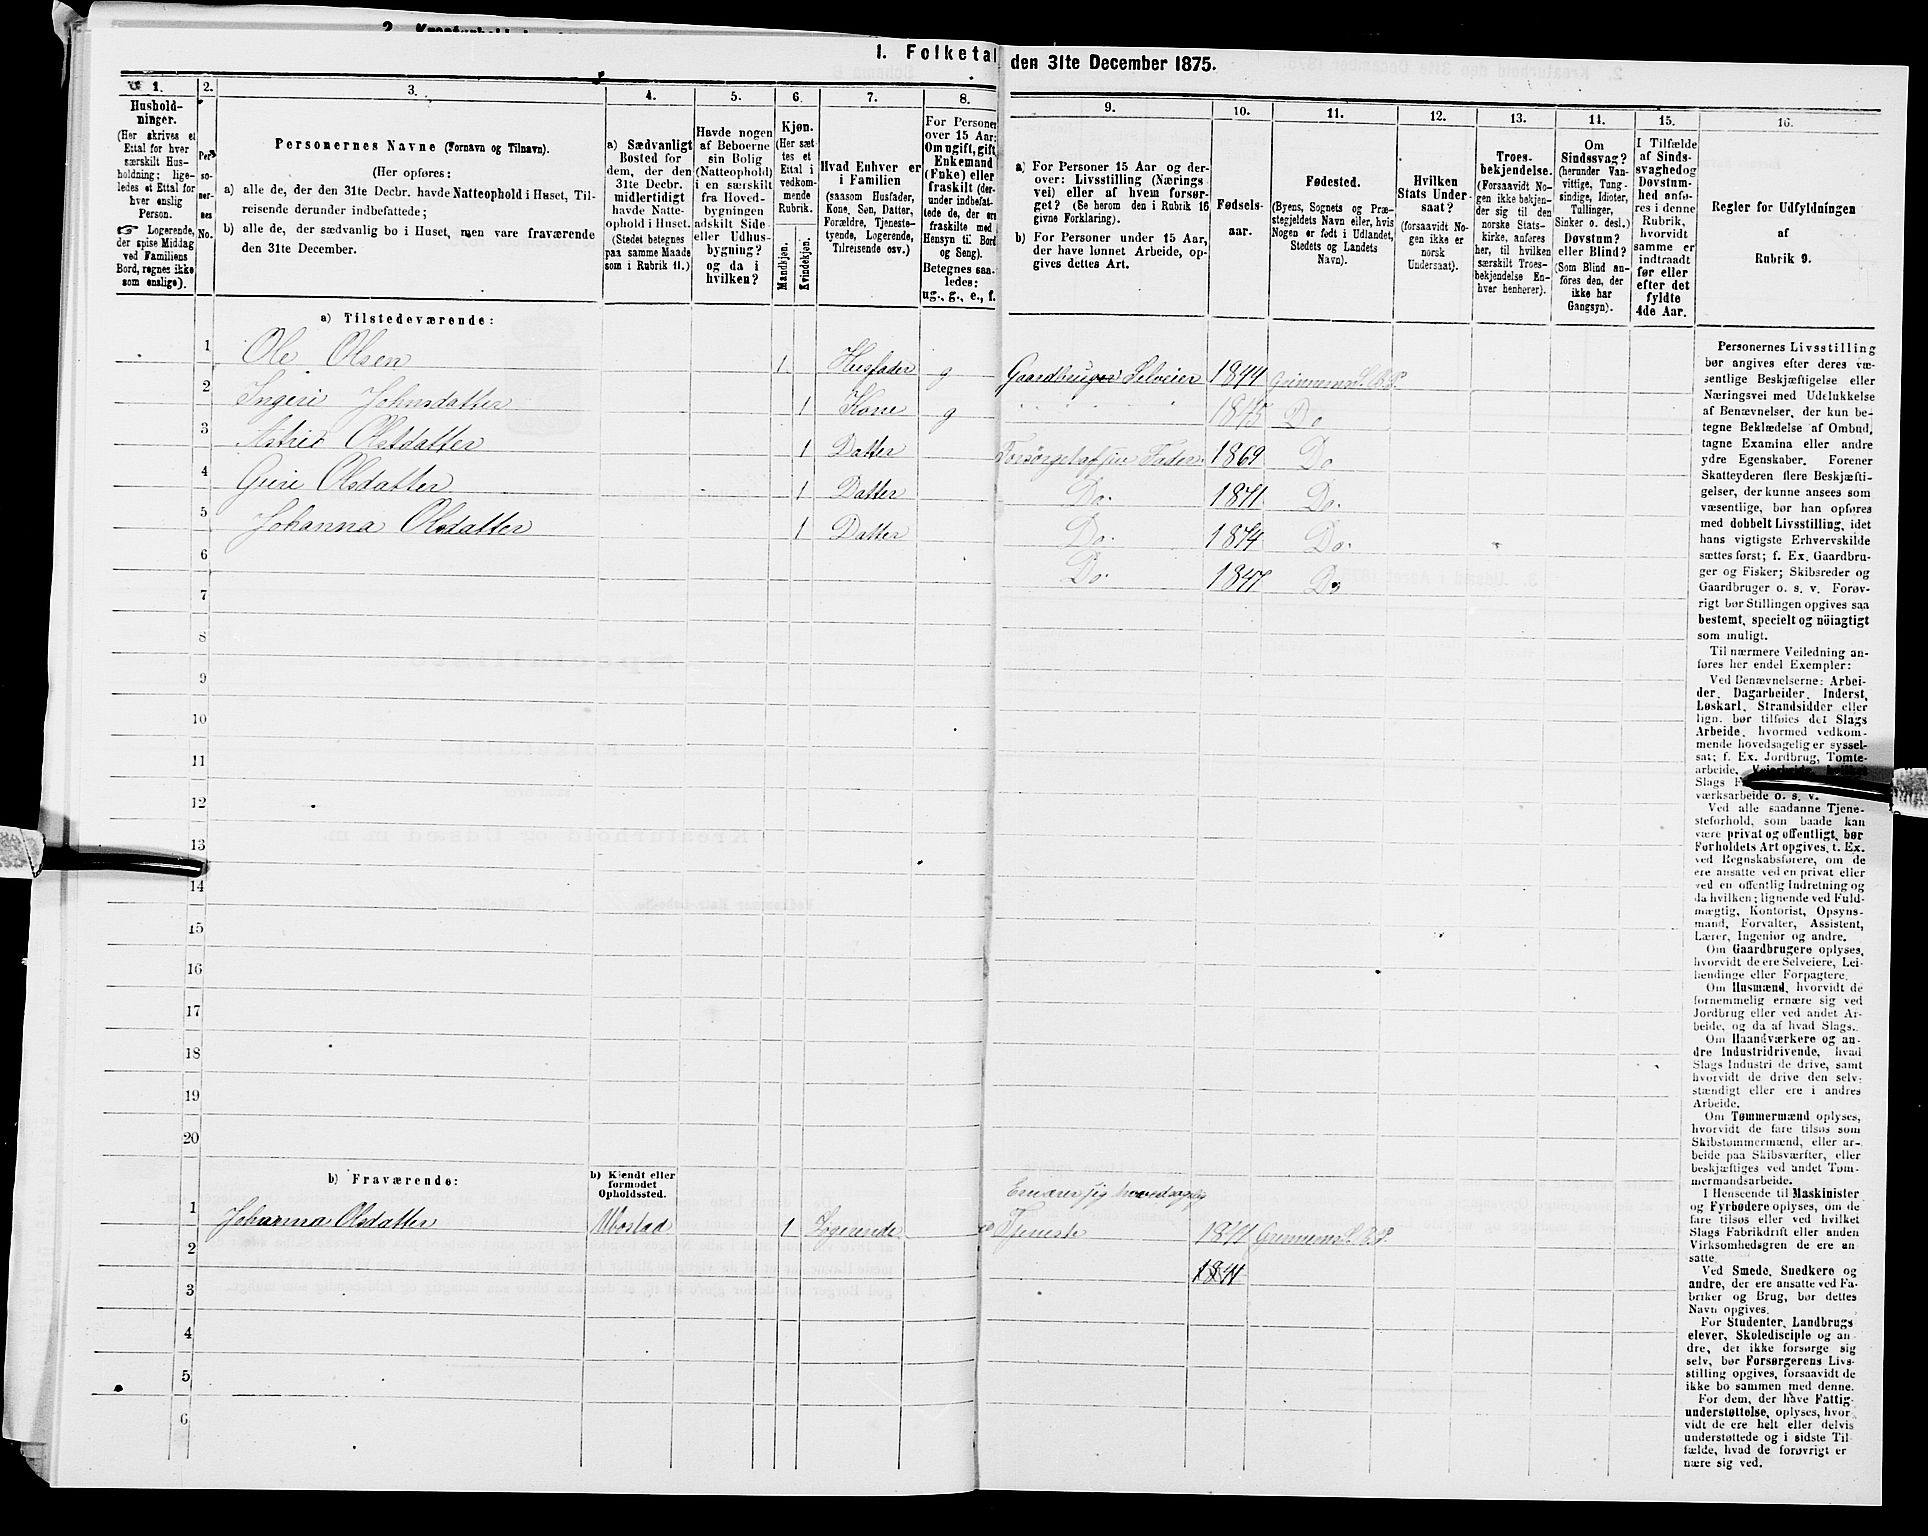 1. Folketal den 31te December 1875.
1.
Hushold-
ninger.
(Her skrives et
Ettal for hver
særskilt Hus-
holdning; lige-
ledes et Ettal for
hver enslig
Person.
Logerende,
der spise Middag
ved Familiens
Bord, regnes ikke
som enslige).
2.
Per-
so-
ner-
nes
No.
3.
Personernes Navne (Fornavn og Tilnavn).
(Her opføres:
a) alle de, der den 31te Decbr. havde Natteophold i Huset, Til-
reisende derunder indbefattede;
b) alle de, der sædvanlig bo i Huset, men vare fraværende
den 31te December.
4.
a) Sædvanligt
Bosted for
dem, der den
31te Decbr.
midlertidigt
havde Natte-
ophold i Huset.
(Stedet betegnes
paa samme Maade
som i Rubrik 11.)
5.
Havde nogen
af Beboerne
sin Bolig
(Natteophold)
i en særskilt
fra Hoved-
bygningen
adskilt Side-
eller Udhus-
bygning?
og da i
hvilken?
6.
Kjøn.
(Her sæt-
tes et
Ettal i
vedkom-
mende
Rubrik.
Mandkjøn.
Kvindekjøn.
7.
Hvad Enhver er
i Familien
(saasom Husfader,
Kone, Søn, Datter,
Forældre, Tjeneste-
tyende, Logerende,
Tilreisende osv.)
8.
For Personer
over 15 Aar:
Om ugift, gift,
Enkemand
(Enke) eller
fraskilt (der-
under indbefat-
tede de, der ere
fraskilte med
Hensyn til Bord
og Seng).
Betegnes saa-
ledes:
ug., g., e., f.
9.
a) For Personer 15 Aar og der-
over: Livsstilling (Nærings-
vei) eller af hvem forsør-
get? (Se herom den i Rubrik 16
givne Forklaring).
b) For Personer under 15 Aar,
der have lønnet Arbeide, op-
gives dettes Art.
10.
Fødsels-
aar.
11.
Fødested.
(Byens, Sognets og Præ-
stegjeldets Navn eller, hvis
Nogen er født i Udlandet,
Stedets og Landets
Navn).
12.
Hvilken
Stats Under-
saat?
(forsaavidt No-
gen ikke er
norsk
Undersaat).
13.
Troes-
bekjendelse.
(Forsaavidt No-
gen ikke bekjen-
der sig til den
norske Stats-
kirke, anføres
her, til hvilken
særskilt Troes-
bekjendelse En-
hver henhører).
14.
Om
Sindssvag?
(herunder Van-
vittige, Tung-
sindige, Idioter,
Tullinger,
Sinker o. desl.)
Døvstum?
eller Blind?
(Som Blind an-
føres den, der
ikke har
Gangsyn).
15.
I Tilfælde
af Sinds-
svaghed og
Døvstum-
hed anfø-
res i denne
Rubrik,
hvorvidt
samme er
indtraadt
før eller
efter det
fyldte
4de Aar.
16.
Regler for Udfyldningen
af
Rubrik 9.
a) Tilstedeværende:
1 Ole Olsen 1 Husfader g Gaardbruger Selveier 1844
2 Ingeri Johnsdatter 1 Kone g 1845 Do
3 Astrid Olsdatter 1 Datter Forsørget af sin Fader 1869 Do
4 Guri Olsdatter 1 Datter Do. 1871 Do.
5 Johanna Olsdatter 1 Datter Do. 1874 Do.
6 Do. 1847 Do
7
8
9
10
11
12
13
14
15
16
17
18
19
20
b) Fraværende:
b) Kjendt eller
formodet
Opholdssted.
Ernærer sig hovedsagelig
1 Johanna Olsdatter 1 Logerende Tjeneste
2
3
4
5
6
Personernes Livsstilling
bør angives efter deres væ-
sentlige Beskjæftigelse eller
Næringsvei med Udelukkelse
af Benævnelser, der kun be-
tegne Beklædelse af Ombud,
tagne Examina eller andre
ydre Egenskaber. Forener
Skatteyderen flere Beskjæfti-
gelser, der kunne ansees som
væsentlige, bør han opføres
med dobbelt Livsstilling, idet
hans vigtigste Erhvervskilde
sættes først; f. Ex. Gaardbru-
ger og Fisker; Skibsreder og
Gaardbruger o. s. v. Forøv-
rigt bør Stillingen opgives saa
bestemt, specielt og nöiagtigt
som muligt.
Til nærmere Veiledning an-
føres her endel Exempler:
Ved Benævnelserne: Arbei-
der, Dagarbeider, Inderst,
Løskarl, Strandsidder eller
lign. bør tilføies det Slags
Arbeide, hvormed vedkom-
mende hovedsagelig er syssel-
sat; f. Ex. Jordbrug, Tomte-
arbeide, Veiarbeide, hvilket
Slags
værksarbeide o. s. v.
Ved alle saadanne Tjene-
steforhold, som baade kan
være privat og offentligt, bør
Forholdets Art opgives, t. Ex.
ved Regnskabsførere, om de
ere ansatte ved en privat eller
ved en offentlig Indretning og
da hvilken; lignende ved Fuld-
mægtig, Kontorist, Opsyns-
mand, Forvalter, Assistent,
Lærer, Ingeniør og andre.
Om Gaardbrugere oplyses,
hvorvidt de ere Selveiere, Lei-
lændinge eller Forpagtere.
Om Husmænd, hvorvidt de
fornemmelig ernære sig ved
Jordbrug eller ved andet Ar-
beide, og da af hvad Slags.
Om Haandværkere og an-
dre Industridrivende, hvad
Slags Industri de drive, samt
hvorvidt de drive den selv-
stændigt eller ere i andres
Arbeide.
Om Tømmermænd oplyses,
hvorvidt de fare tilsøs som
Skibstømmermænd, eller ar-
beide paa Skibsværfter, eller
beskjæftiges ved andet Tøm-
mermandsarbeide.
I Henseende til Maskinister
og Fyrbødere oplyses, om de
fare tilsøs eller ved hvilket
Slags Fabrikdrift eller anden
Virksomhedsgren de ere an-
satte.
Ved Smede, Snedkere og
andre, der ere ansatte ved Fa-
briker og Brug, bør dettes
Navn opgives.
For Studenter, Landbrugs-
elever, Skoledisciple og an-
dre, det ikke forsørge sig
selv, bør Forsørgerens Livs-
stilling opgives, forsaavidt de
ikke bo sammen med denne.
For dem, der have Fattig-
understøttelse, oplyses, hvor-
vidt de ere helt eller delvis
understøttede og i sidste Til-
fælde, hvad de forøvrigt er-
nære sig ved.